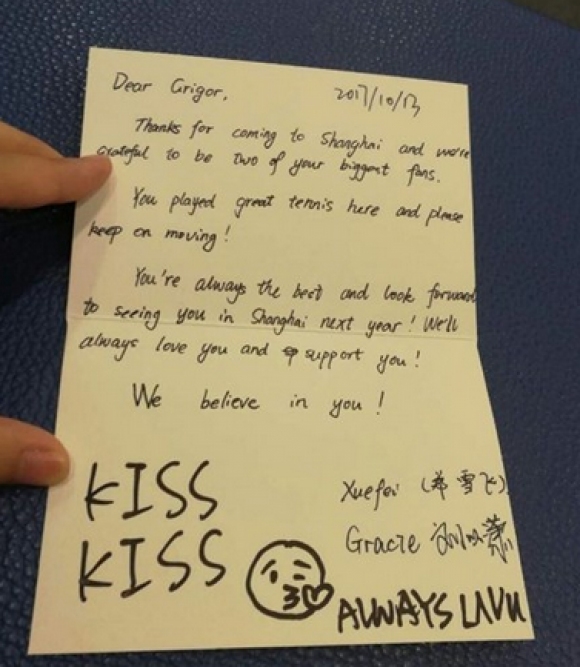 Dear Grigor,
2017/10/13
Thanks for coming to Shanghai and we're
grateful to be two of your biggest fans.
You played great tennis here and please
keep on moving!
You're always the best and look forward
to seeing you in Shanghai next year! We'll
always love you and support you!
We believe in you!
KISS
KISS
Xuefei (郑雪飞)
Gracie
ALWAYS LUVU